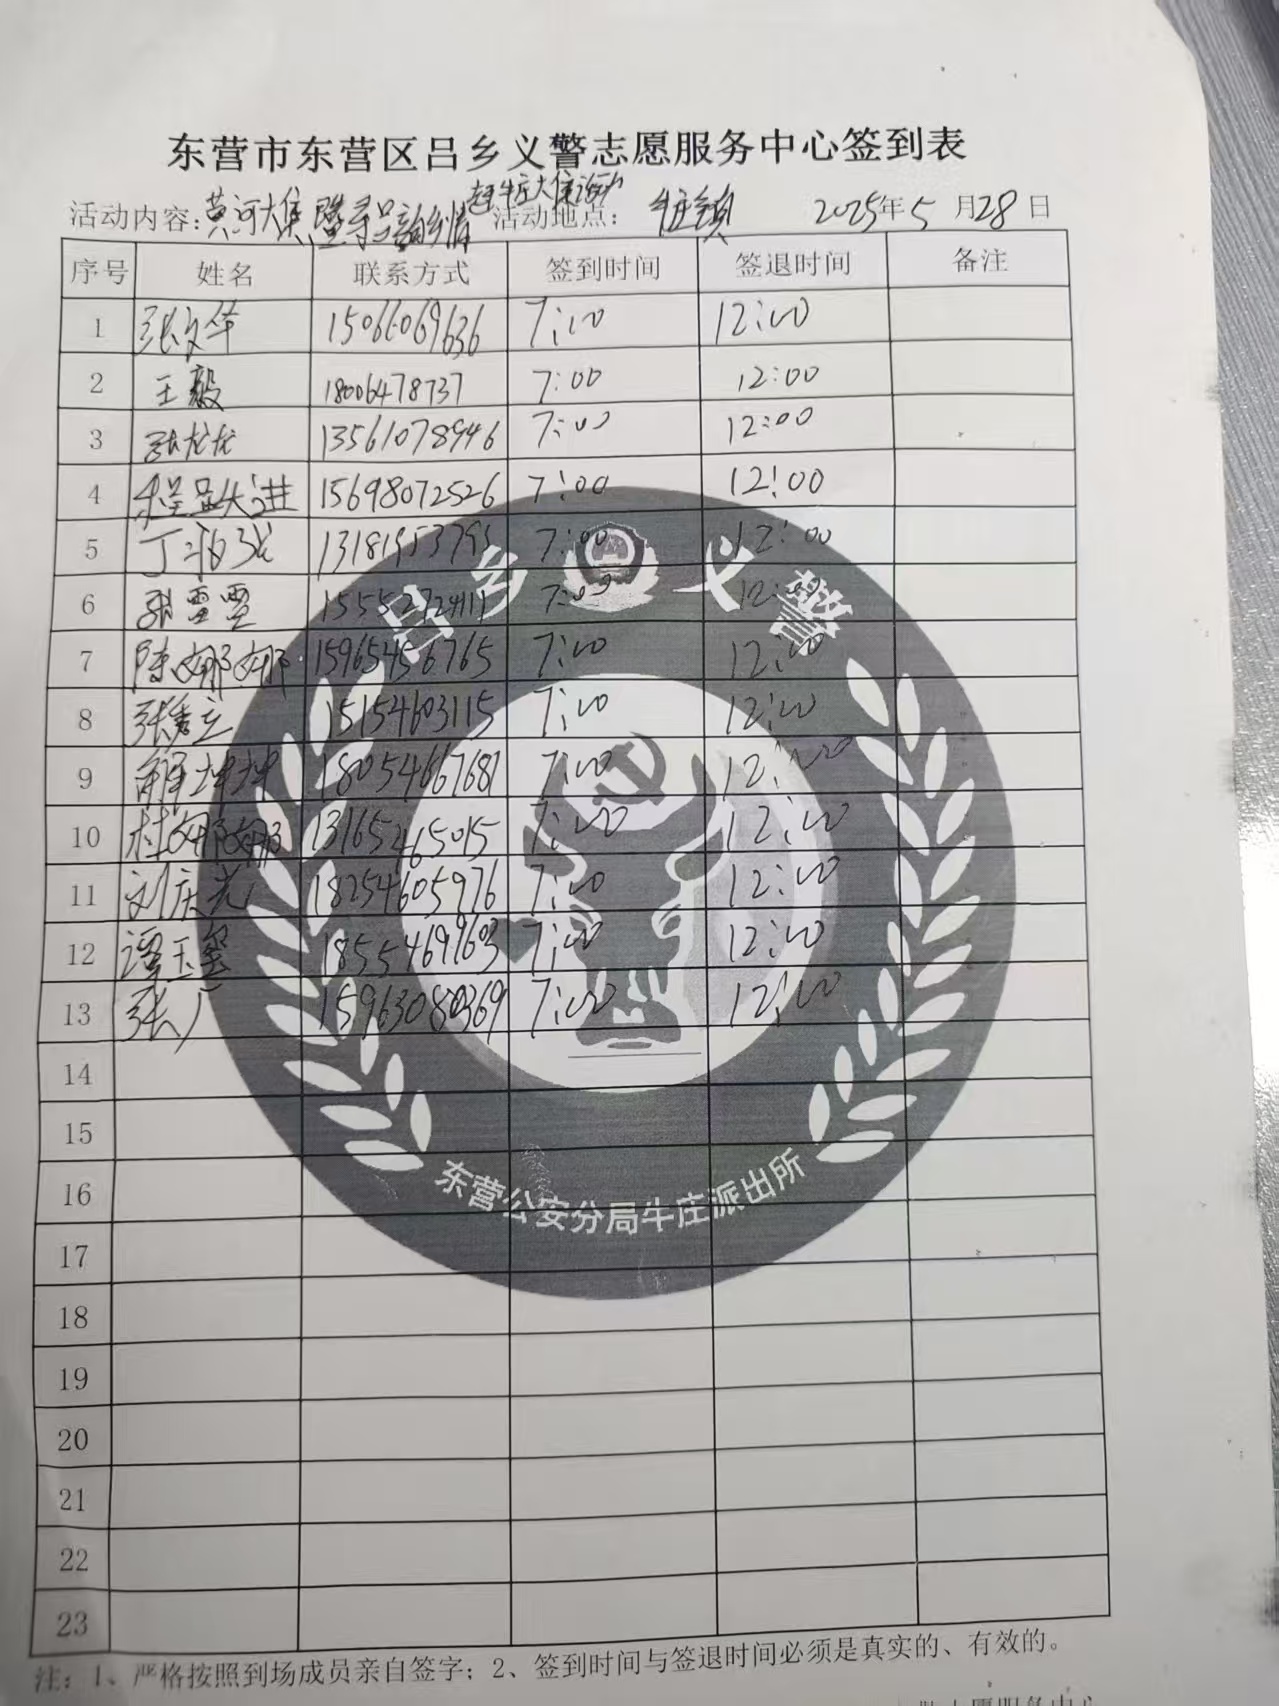 东营市东营区吕乡义警志愿服务中心签到表
活动内容:黄河大集暨寻吕韵乡情 赶牛庄大集活动 活动地点: 牛庄镇 2025年5月28日
序号 姓名 联系方式 签到时间 签退时间 备注
1 张文华 15066069636 7:00 12:00
2 王毅 18006478737 7:00 12:00
3 张龙龙 13561078946 7:00 12:00
4 15698072526 7:00 12:00
5 丁 7:00 12:00
6 张雷雷 15552724111 7:00 12:00
7 陈娜娜 15965456765 7:00 12:00
8 张秀立 15154603115 7:00 12:00
9 解坤坤 18054667681 7:00 12:00
10 杜娜娜 13165465015 7:00 12:00
11 刘庆光 18254605976 7:00 12:00
12 谭玉 18554699603 7:00 12:00
13 张广 15963080369 7:00 12:00
14
15
16
17
18
19
20
21
22
23
吕乡义警
东营公安分局牛庄派出所
注:1、严格按照到场成员亲自签字;2、签到时间与签退时间必须是真实的、有效的。